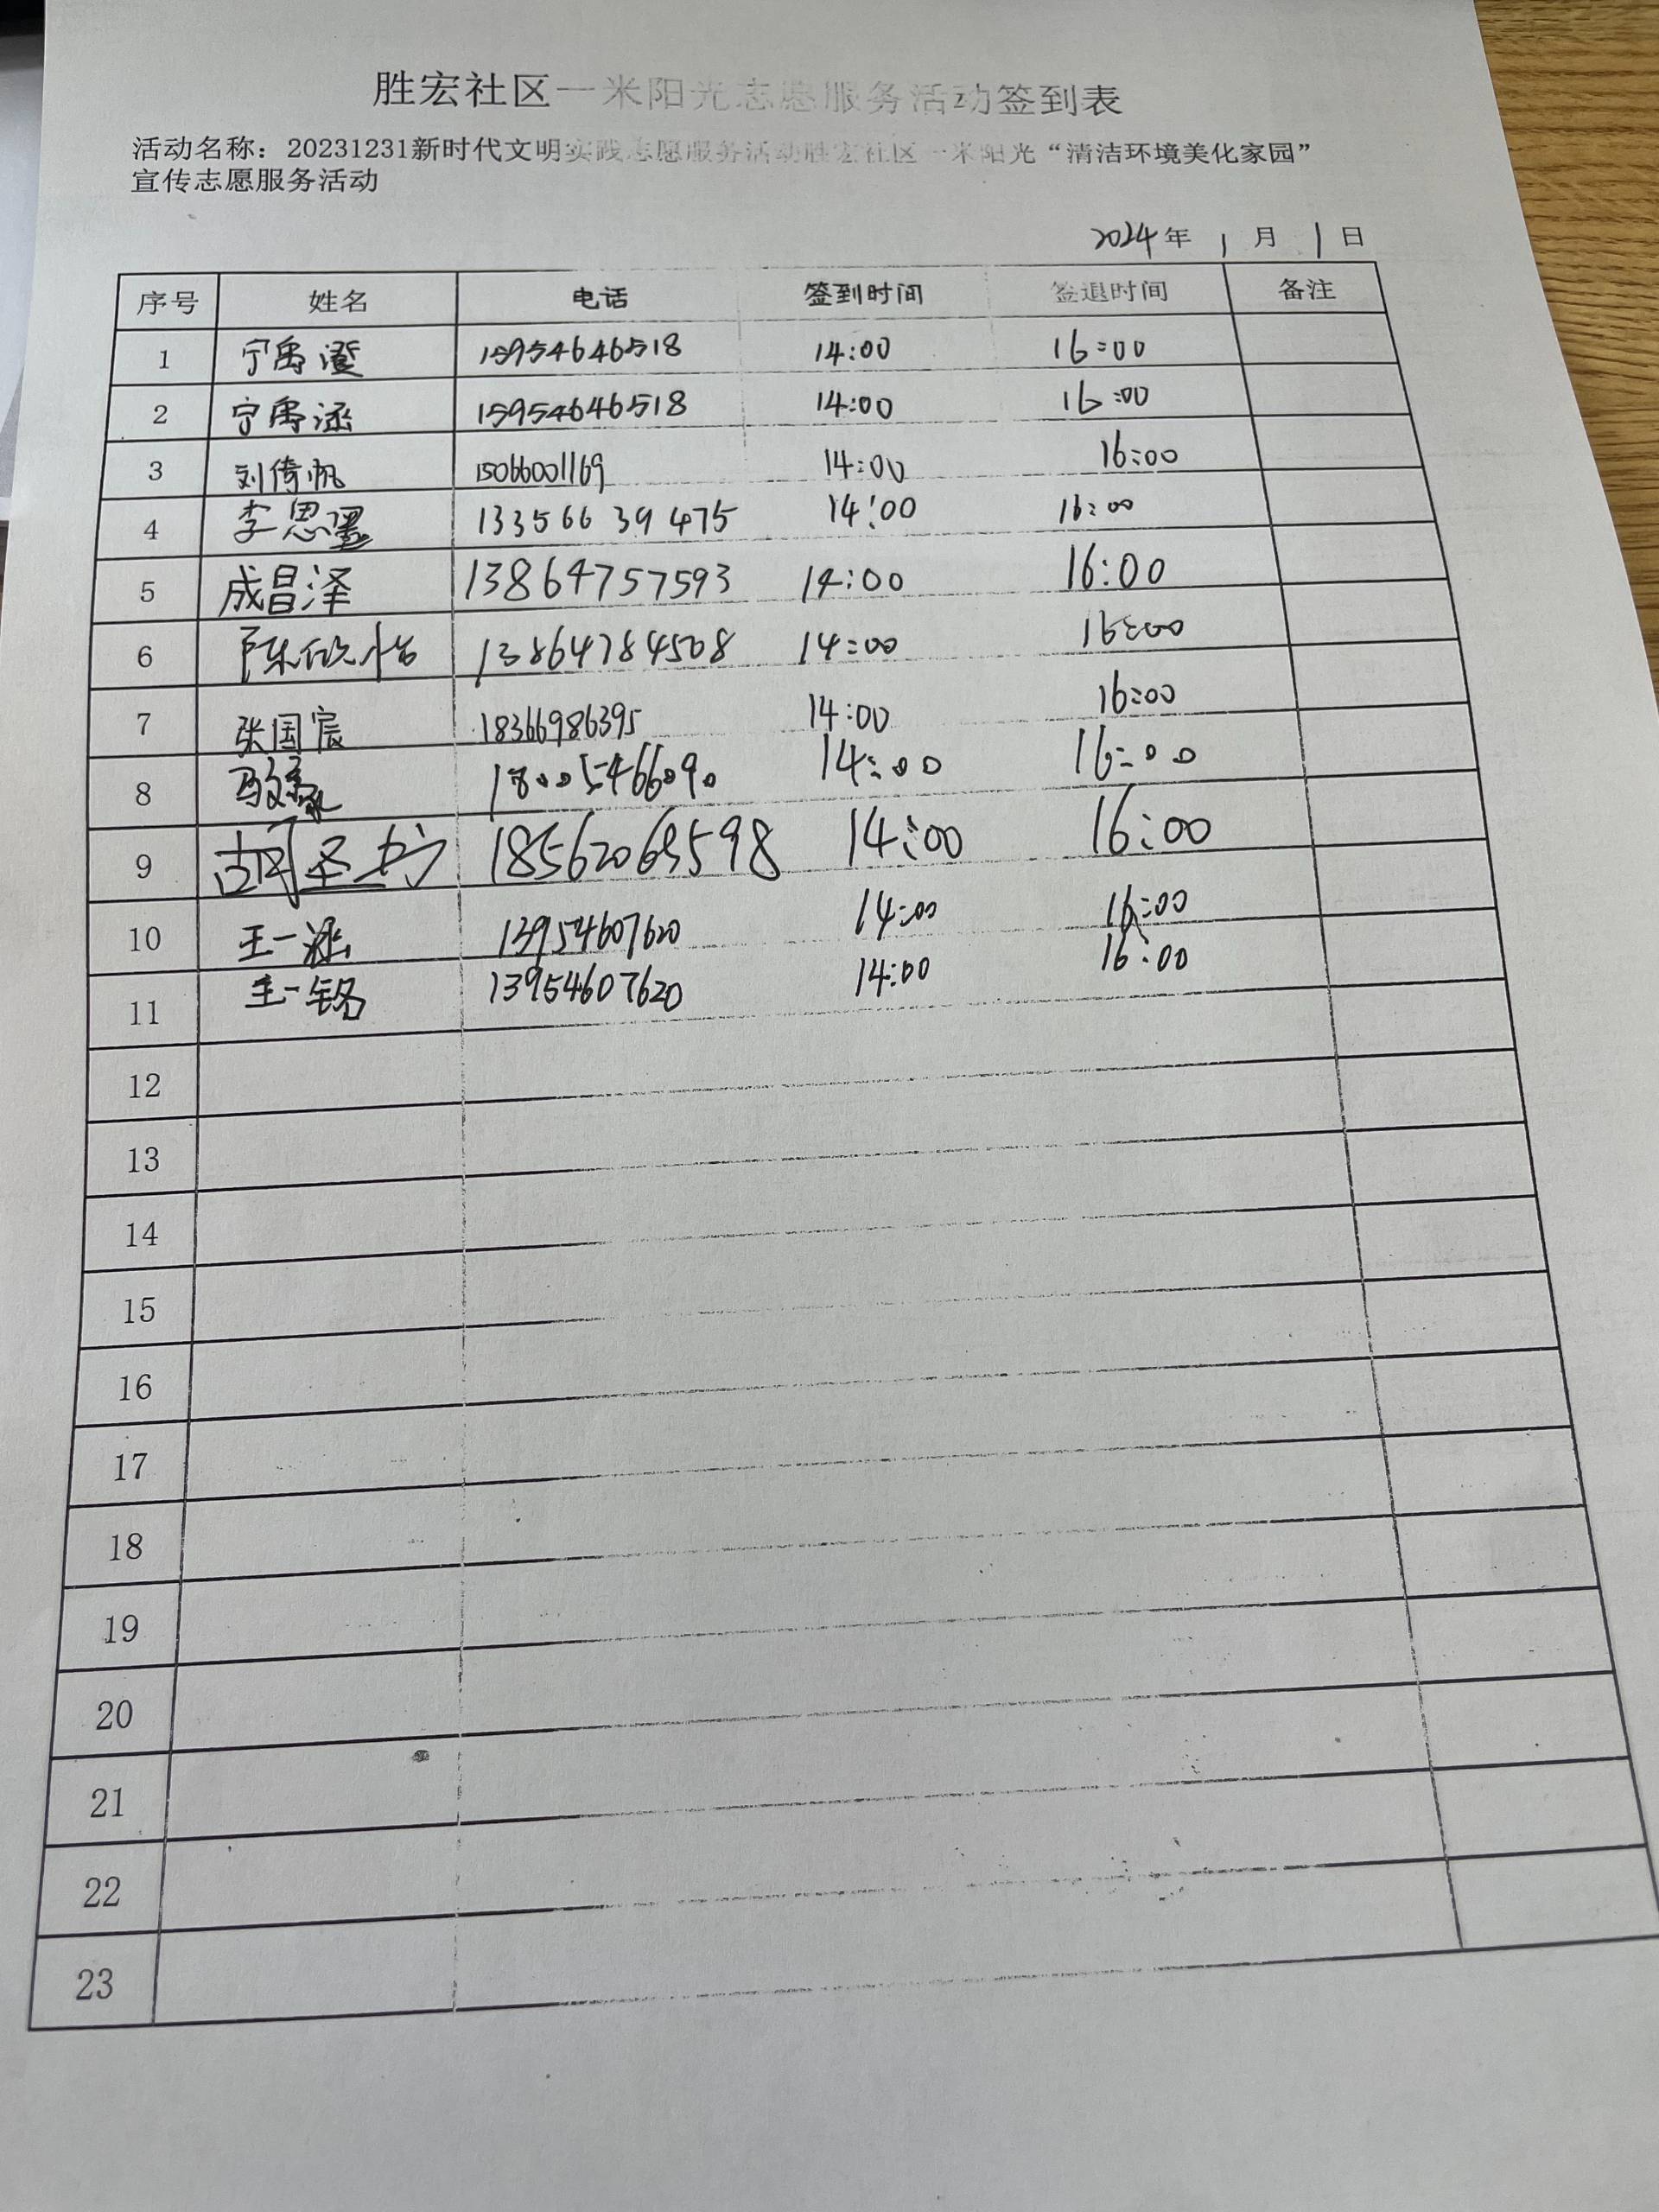 胜宏社区一米阳光志愿服务活动签到表
活动名称：20231231新时代文明实践志愿服务活动胜宏社区一米阳光“清洁环境美化家园”
宣传志愿服务活动
2024年 1 月 1 日
序号 姓名 电话 签到时间 签退时间 备注
1 宁禹澄 15954646518 14:00 16:00
2 宁禹涵 15954646518 14:00 16:00
3 刘倚帆 15066001169 14:00 16:00
4 李思墨 13356639475 14:00 16:00
5 成昌泽 13864757593 14:00 16:00
6 陈欣怡 13864784508 14:00 16:00
7 张国宸 18366986395 14:00 16:00
8 18005466090 14:00 16:00
9 胡圣 14:00 16:00
10 王一涵 13954607620 14:00 16:00
11 王一铭 13954607620 14:00 16:00
12
13
14
15
16
17
18
19
20
21
22
23